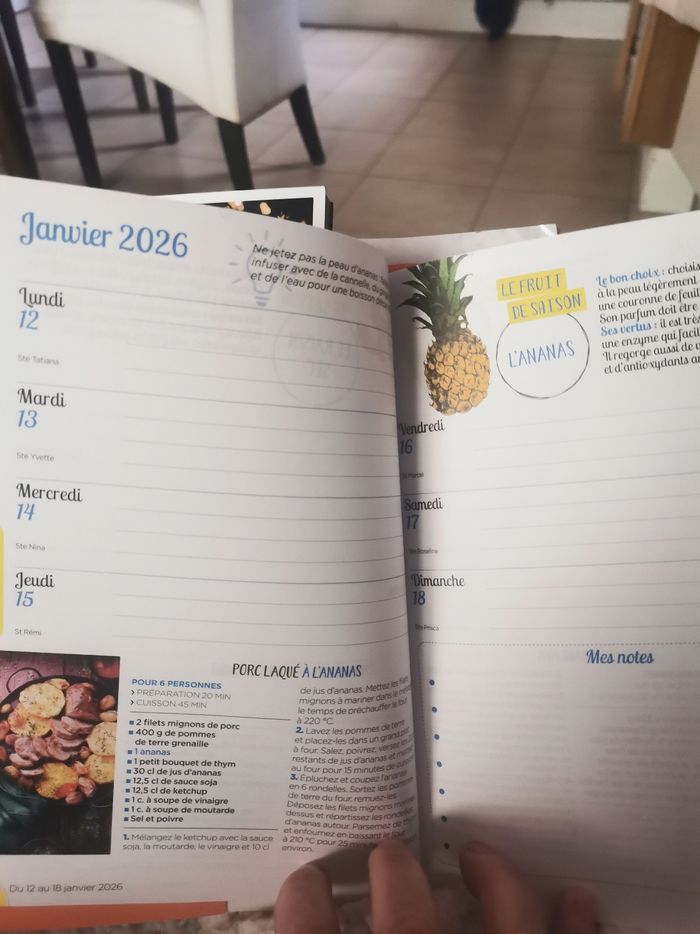 Janvier 2026
Ne jetez pas la peau d'ananas :
infuser avec de la cannelle, du
et de l'eau pour une boisson
Lundi
12
Ste Tatiana
Mardi
13
Ste Yvette
Mercredi
14
Ste Nina
Jeudi
15
St Rémi
PORC LAQUÉ À L'ANANAS
POUR 6 PERSONNES
> PRÉPARATION 20 MIN
> CUISSON 45 MIN
2 filets mignons de porc
400 g de pommes
de terre grenaille
1 ananas
1 petit bouquet de thym
30 cl de jus d'ananas
12,5 cl de sauce soja
12,5 cl de ketchup
1 c. à soupe de vinaigre
1 c. à soupe de moutarde
Sel et poivre
1. Mélangez le ketchup avec la sauce
soja, la moutarde, le vinaigre et 10 cl
de jus d'ananas. Mettez les filets
mignons à mariner dans le
le temps de préchauffer le four
à 220 °C.
2. Lavez les pommes de terre
et placez-les dans un grand plat
à four. Salez, poivrez, versez les
restants de jus d'ananas et
au four pour 15 minutes de
3. Épluchez et coupez l'ananas
en 6 rondelles. Sortez les pommes
de terre du four, remuez-les.
Déposez les filets mignons
dessus et répartissez les rondelles
d'ananas autour. Parsemez de
et enfournez en baissant le four
à 210 °C pour 25 minutes
environ.
Du 12 au 18 janvier 2026
LE FRUIT
DE SAISON
L'ANANAS
Le bon choix : choisis
à la peau légèrement
une couronne de feuil
Son parfum doit être
Ses vertus : il est trè
une enzyme qui facil
Il regorge aussi de v
et d'antioxydants a
Vendredi
16
St Marcel
Samedi
17
Ste Roseline
Dimanche
18
Ste Prisca
Mes notes